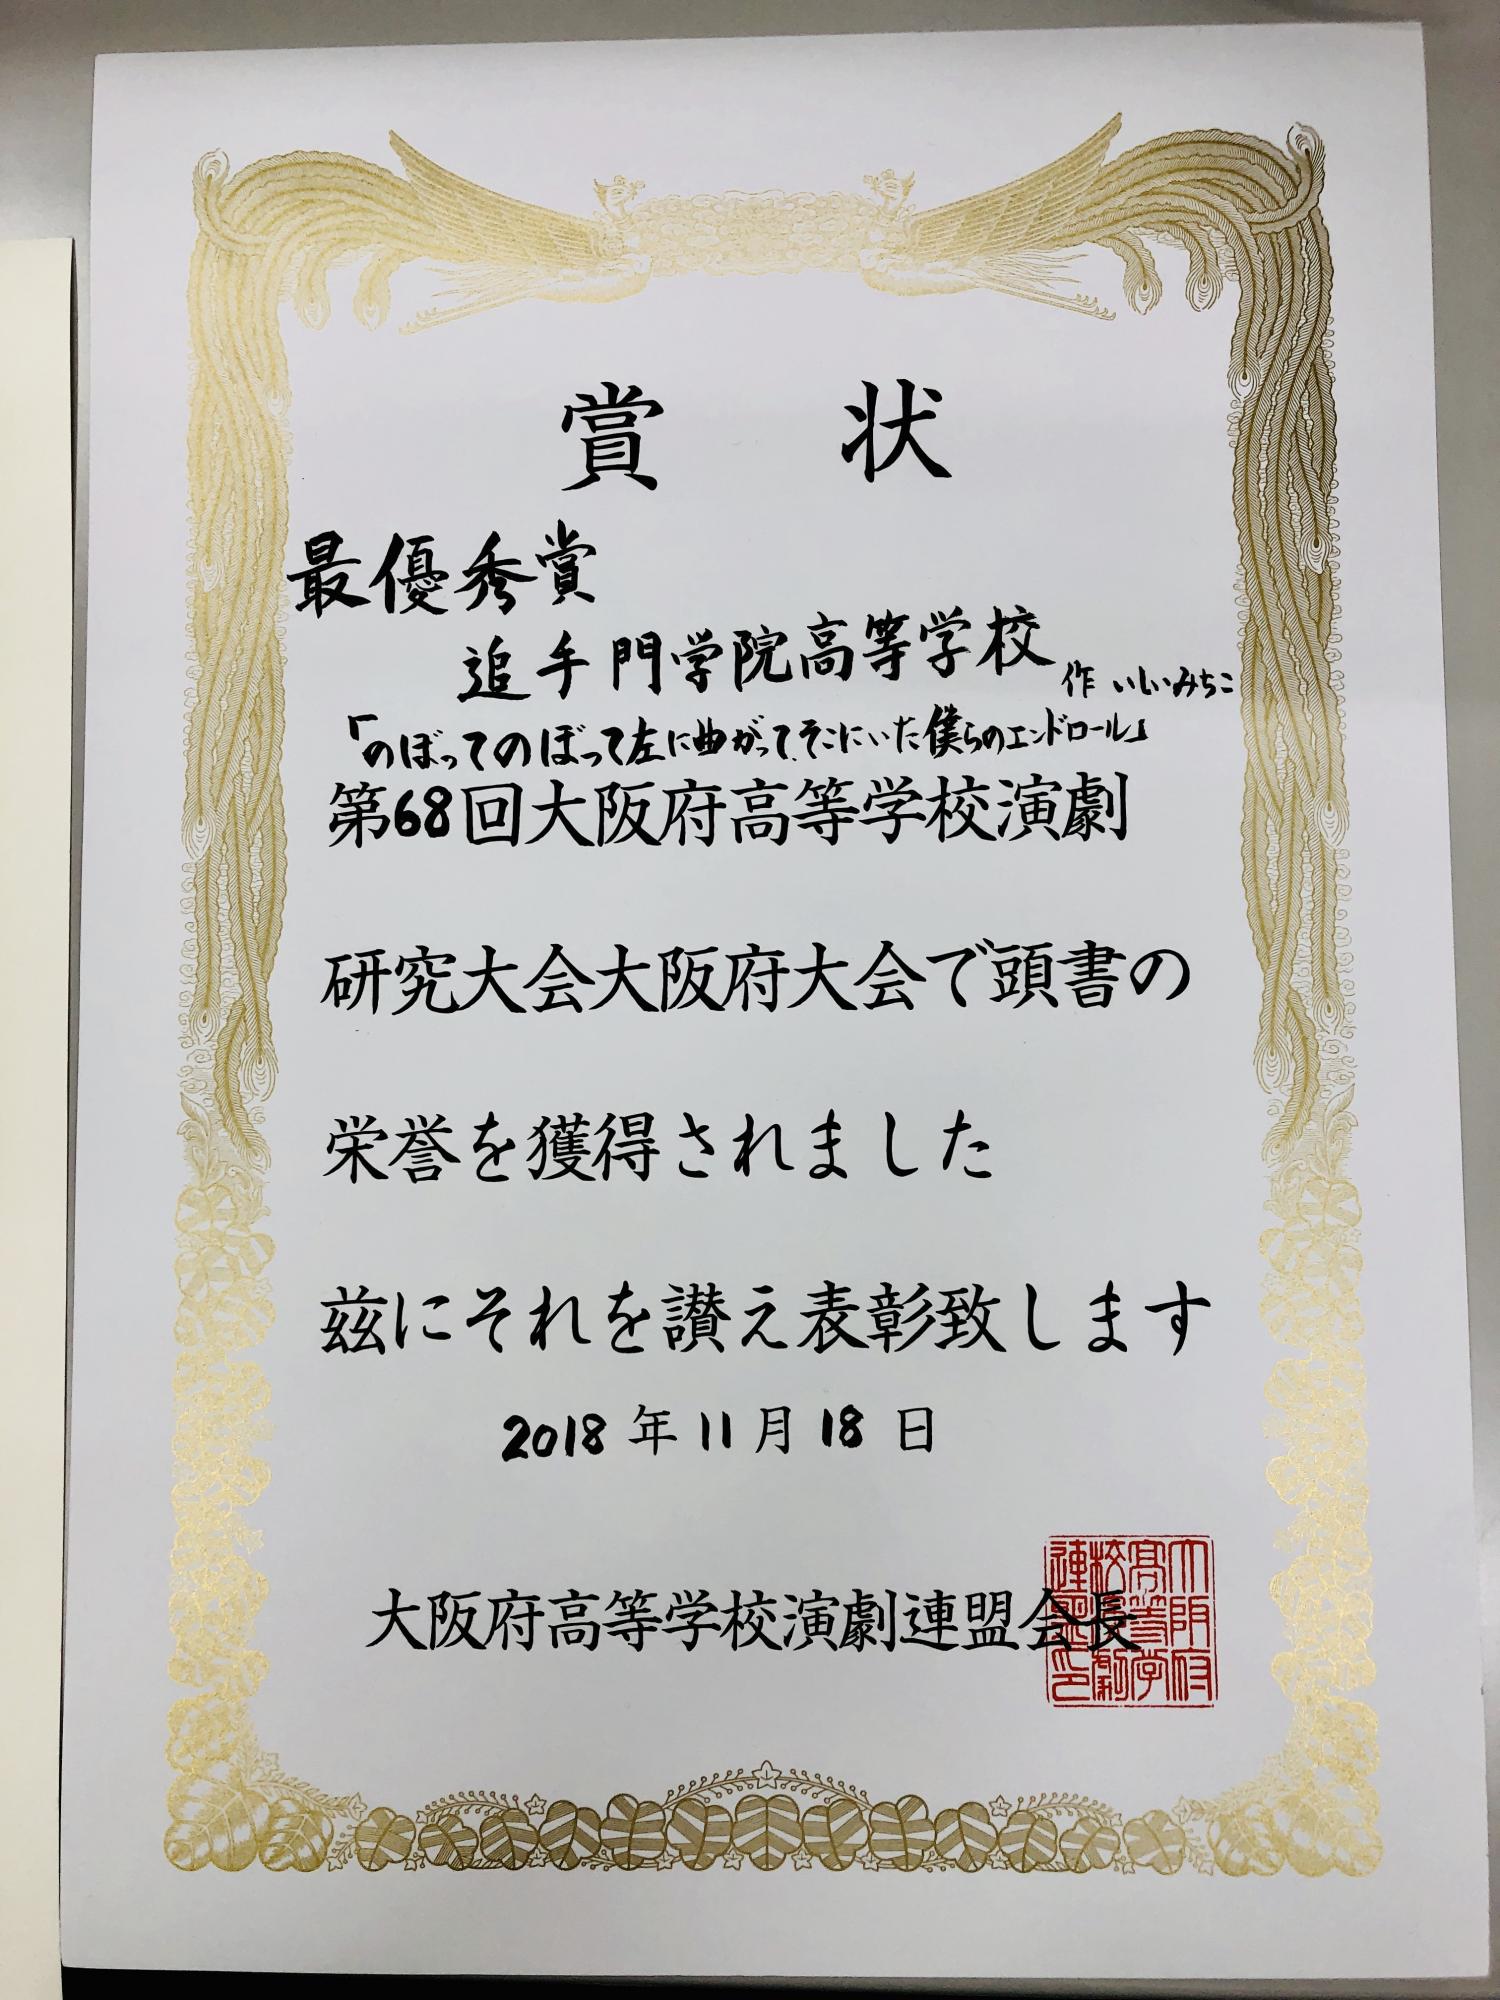 賞状
最優秀賞
追手門学院高等学校 作 いしいみちこ
「のぼってのぼって左に曲がって、そこにいた僕らのエンドロール」
第68回大阪府高等学校演劇
研究大会大阪府大会で頭書の
栄誉を獲得されました
茲にそれを讃え表彰致します
2018年11月18日
大阪府高等学校演劇連盟会長
大阪府
高等学
校演劇
連盟印